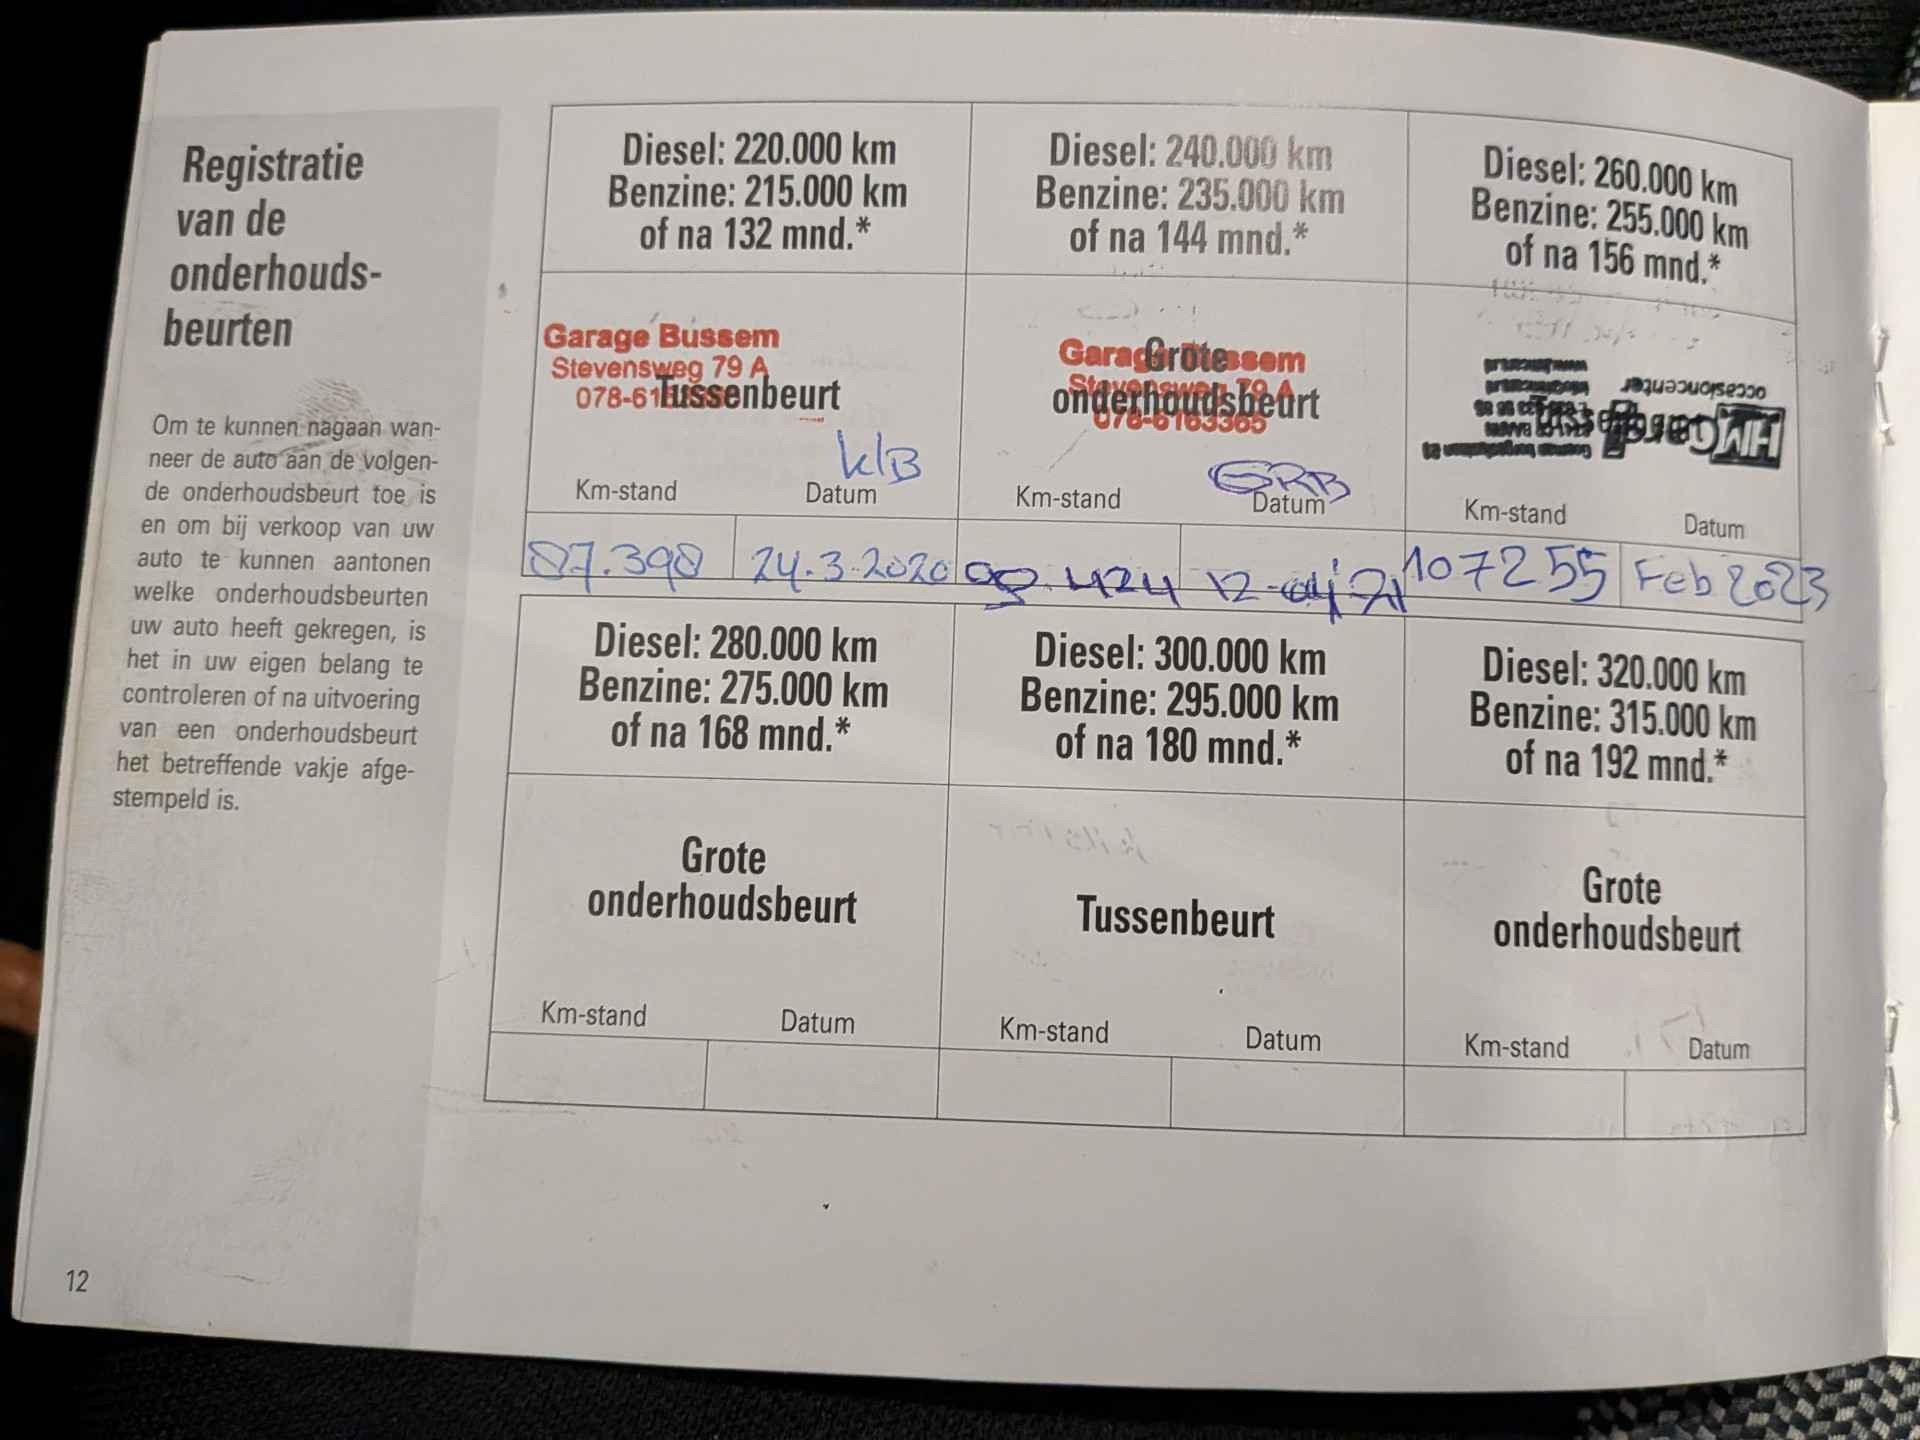 Registratie
van de
onderhouds-
beurten
Om te kunnen nagaan wan-
neer de auto aan de volgen-
de onderhoudsbeurt toe is
en om bij verkoop van uw
auto te kunnen aantonen
welke onderhoudsbeurten
uw auto heeft gekregen, is
het in uw eigen belang te
controleren of na uitvoering
van een onderhoudsbeurt
het betreffende vakje afge-
stempeld is.
12
Diesel: 220.000 km
Benzine: 215.000 km
of na 132 mnd.*
Garage Bussem
Stevensweg 79 A
Tussenbeurt
KlB
Km-stand Datum
87.398 24.3.2020
Diesel: 240.000 km
Benzine: 235.000 km
of na 144 mnd.*
Garage Bussem
Grote
Stevensweg 79 A
onderhoudsbeurt
078-6163365
GRB
Km-stand Datum
98.424
Diesel: 260.000 km
Benzine: 255.000 km
of na 156 mnd.*
HMC
occasioncenter
Km-stand Datum
107255 Feb 2023
Diesel: 280.000 km
Benzine: 275.000 km
of na 168 mnd.*
Grote
onderhoudsbeurt
Km-stand Datum
Diesel: 300.000 km
Benzine: 295.000 km
of na 180 mnd.*
Tussenbeurt
Km-stand Datum
Diesel: 320.000 km
Benzine: 315.000 km
of na 192 mnd.*
Grote
onderhoudsbeurt
Km-stand Datum